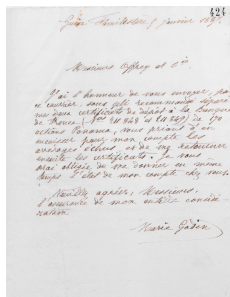 424
Guise Familistère, 9 janvier 189
Messieurs Offroy et Cie
J'ai l'honneur de vous envoyer, par
ce courrier, sous pli recommandé séparé
deux certificats de dépôt à la Banque
de France (Nos
actions Panama, vous priant d'en
encaisser pour mon compte les
arrérages échus et de me retourner
ensuite les certificats. Je vous
serai obligée de me donner en même
temps l'état de mon compte chez vous.
Veuillez agréer, Messieurs,
l'assurance de mon entière considé
ration
Marie Godin